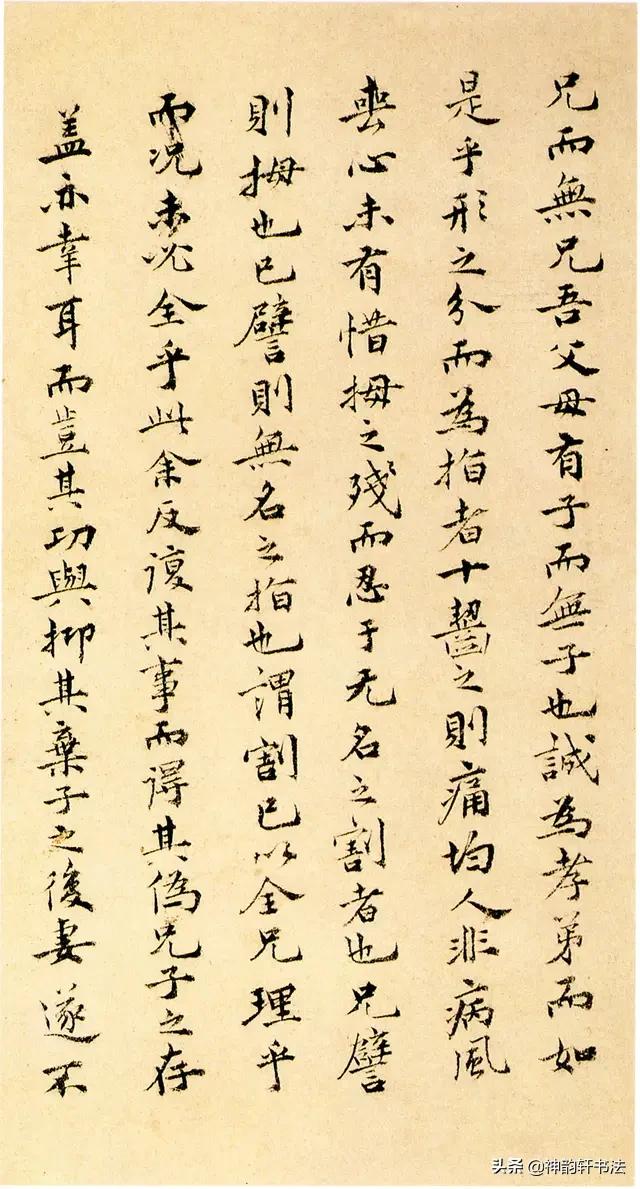 兄而無兄吾父母有子而無子也誠為孝弟而如
是乎形之分而為指者十齧之則痛均人非病風
喪心未有惜拇之殘而忍于无名之割者也兄譬
則拇也已譬則無名之指也謂割已以全兄理乎
而況未必全乎此余反復其事而得其偽兄子之存
盖亦幸耳而豈其功與抑其棄子之後妻遂不
头条 @神韵轩书法